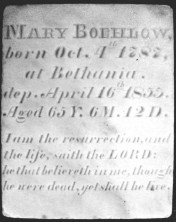 MARY BOEHLOW,
born Oct. 4th 1787,
at Bethania.
dep. April 16th 1853.
Aged 65 Y. 6 M. 12 D.
I am the resurrection, and
the life, saith the LORD:
he that believeth in me, though
he were dead, yet shall he live.